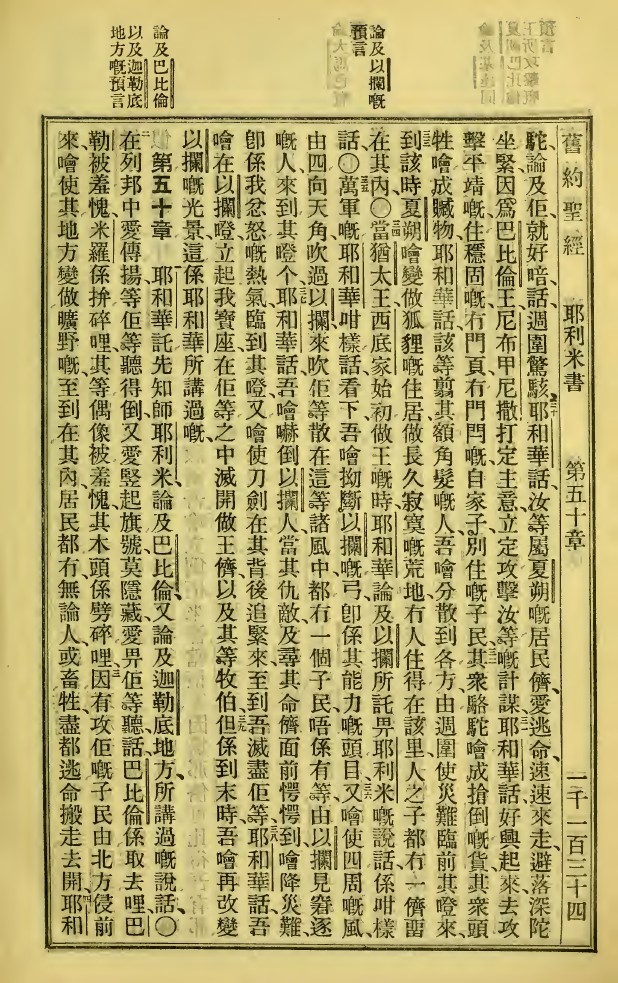 舊約聖經　耶利米書　第五十章　一千一百三十四
論及以攔嘅
預言
論及巴比倫
以及迦勒底
地方嘅預言
駝、論及佢、就好唁、話、週圍驚駭、三十耶和華話、汝等屬夏朔嘅居民儕、愛逃命、速速來走、避落深陀
坐緊因爲巴比倫王尼布甲尼撒打定主意立定攻擊汝等嘅計謀、三一耶和華話好興起來去攻
擊平靖嘅住穩固嘅冇門頁冇門閂嘅自家子別住嘅子民、三二其衆駱駝噲成搶倒嘅貨其衆頭
牲噲成贓物、耶和華話、該等翦其額角髮嘅人、吾噲分散到各方、由週圍使災難臨前其噔來、
三三到該時夏朔噲變做狐狸嘅住居做長久寂寞嘅荒地、冇人住得在該里、人之子都冇一儕畱
在其內、〇三四當猶太王西底家始初做王嘅時、耶和華論及以攔所託畀耶利米嘅說話、係咁樣
話、〇三五萬軍嘅耶和華咁樣話、看下吾噲拗斷以攔嘅弓、卽係其能力嘅頭目、三六又噲使四周嘅風、
由四向天角吹過以攔來、吹佢等散在這等諸風中、都冇一個子民唔係有等由以攔見窘逐
嘅人來到其噔个、三七耶和華話、吾噲嚇倒以攔人、當其仇敵及尋其命儕面前愕愕到、噲降災難、
卽係我忿怒嘅熱氣臨到其噔、又噲使刀劍在其背後追緊來、至到吾滅盡佢等、三八耶和華話、吾
噲在以攔噔、立起我寶座、在佢等之中滅開做王儕以及其等牧伯、三九但係到末時吾噲再改變
以攔嘅光景、這係耶和華所講過嘅、
第五十章　一耶和華託先知師耶利米、論及巴比倫、又論及迦勒底地方、所講過嘅說話、〇
二在列邦中愛傳揚、等佢等聽得倒、又愛竪起旗號、莫隱藏、愛畀佢等聽、話、巴比倫係取去哩、巴
勒被羞愧、米羅係拚碎哩、其等偶像被羞愧、其木頭係劈碎哩、三因有攻佢嘅子民由北方侵前
來、噲使其地方變做曠野嘅、至到在其內居民都冇、無論人、或畜牲、盡都逃命搬走去開、四耶和